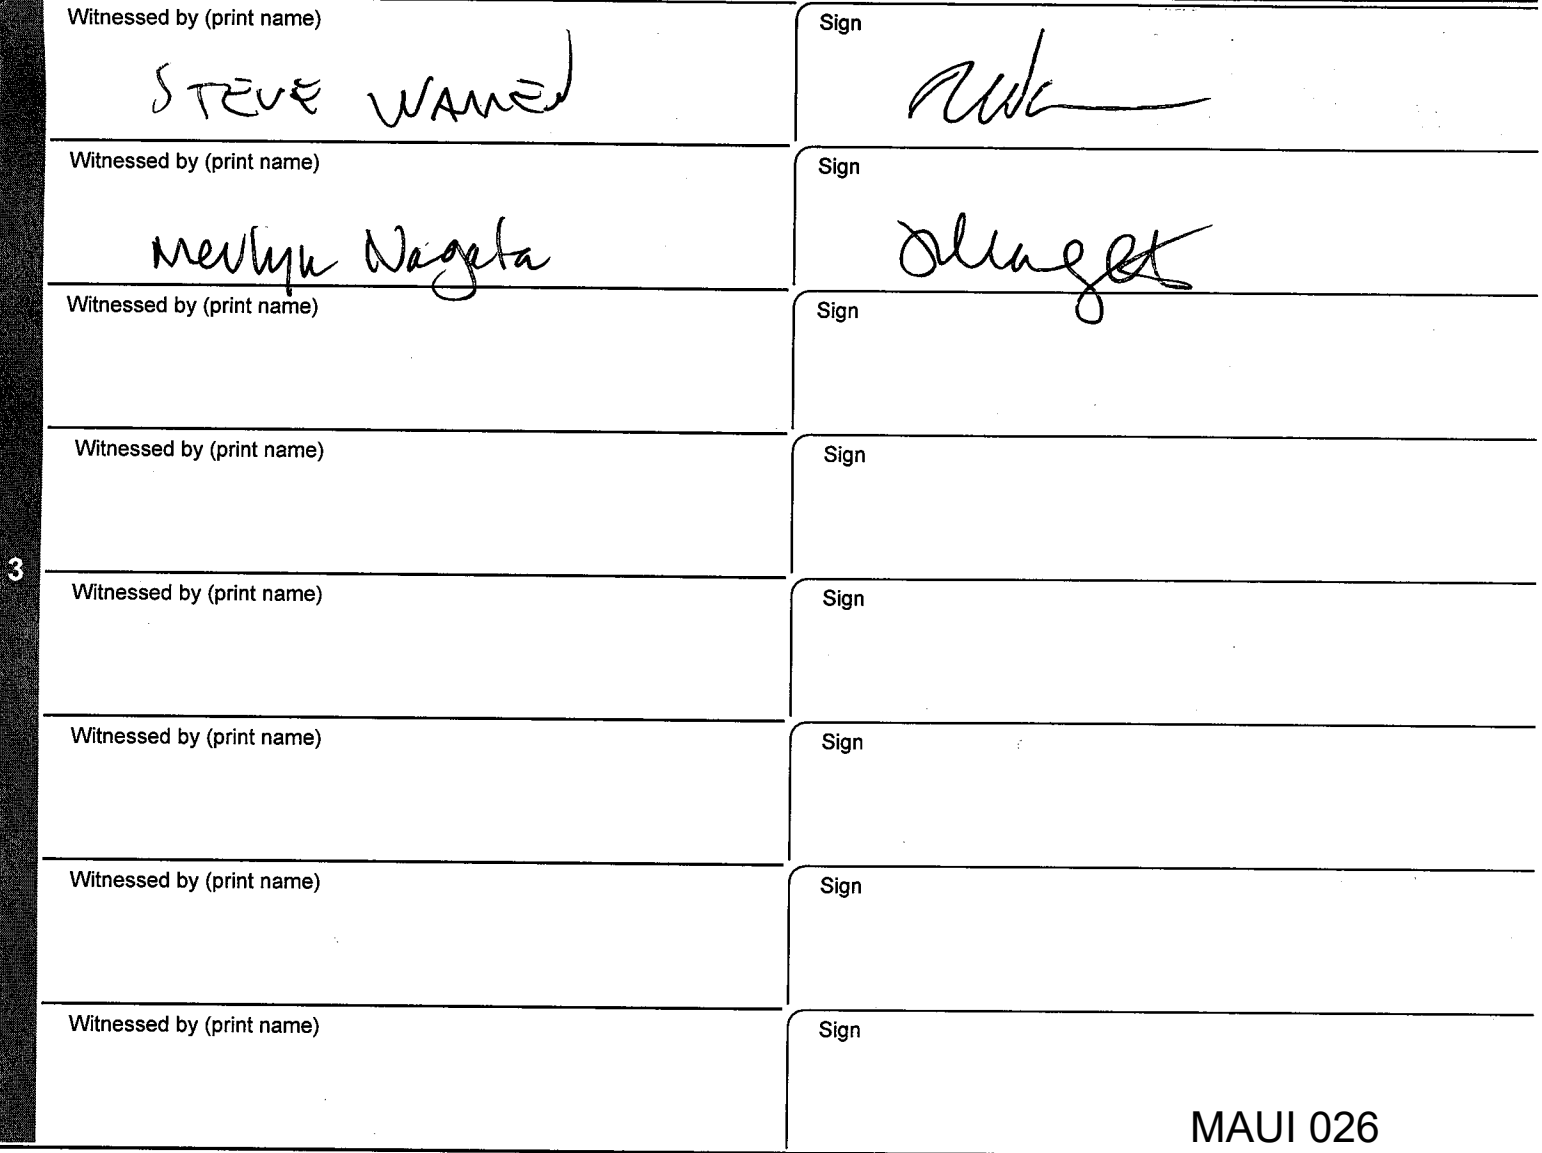 Witnessed by (print name) Sign
STEVE
Witnessed by (print name) Sign
Merlyn Nagata
Witnessed by (print name) Sign
Witnessed by (print name) Sign
3
Witnessed by (print name) Sign
Witnessed by (print name) Sign
Witnessed by (print name) Sign
Witnessed by (print name) Sign
MAUI 026